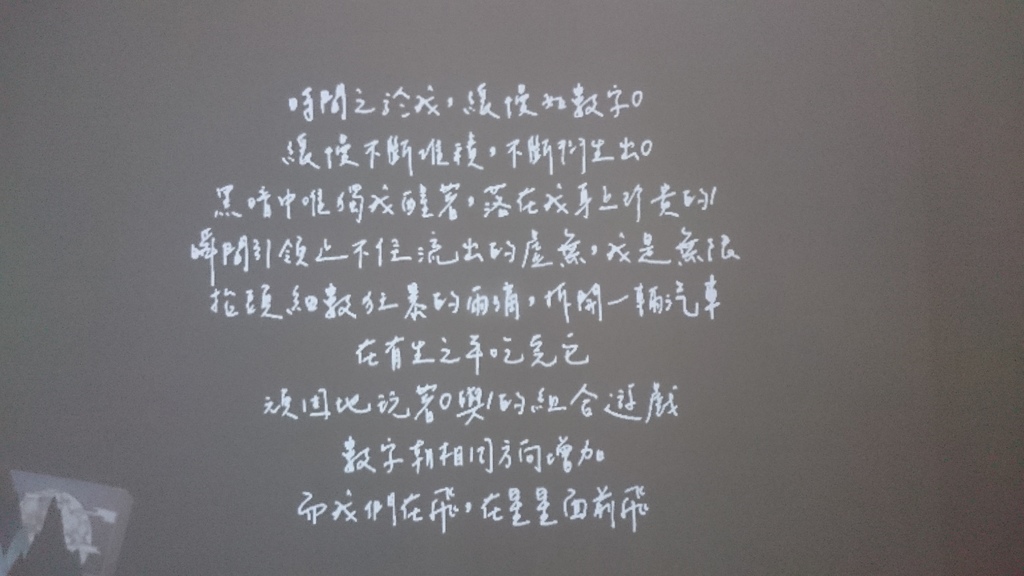 時間之於我，緩慢如數字0
緩慢不斷堆積，不斷衍生出0
黑暗中唯獨我醒著，落在我身上珍貴的1
瞬間引領止不住流出的虛無，我是無限
抬頭細數狂暴的雨滴，拆開一輛汽車
在有生之年吃完它
頑固地玩著0與1的組合遊戲
數字朝相同方向增加
而我們在飛，在星星面前飛